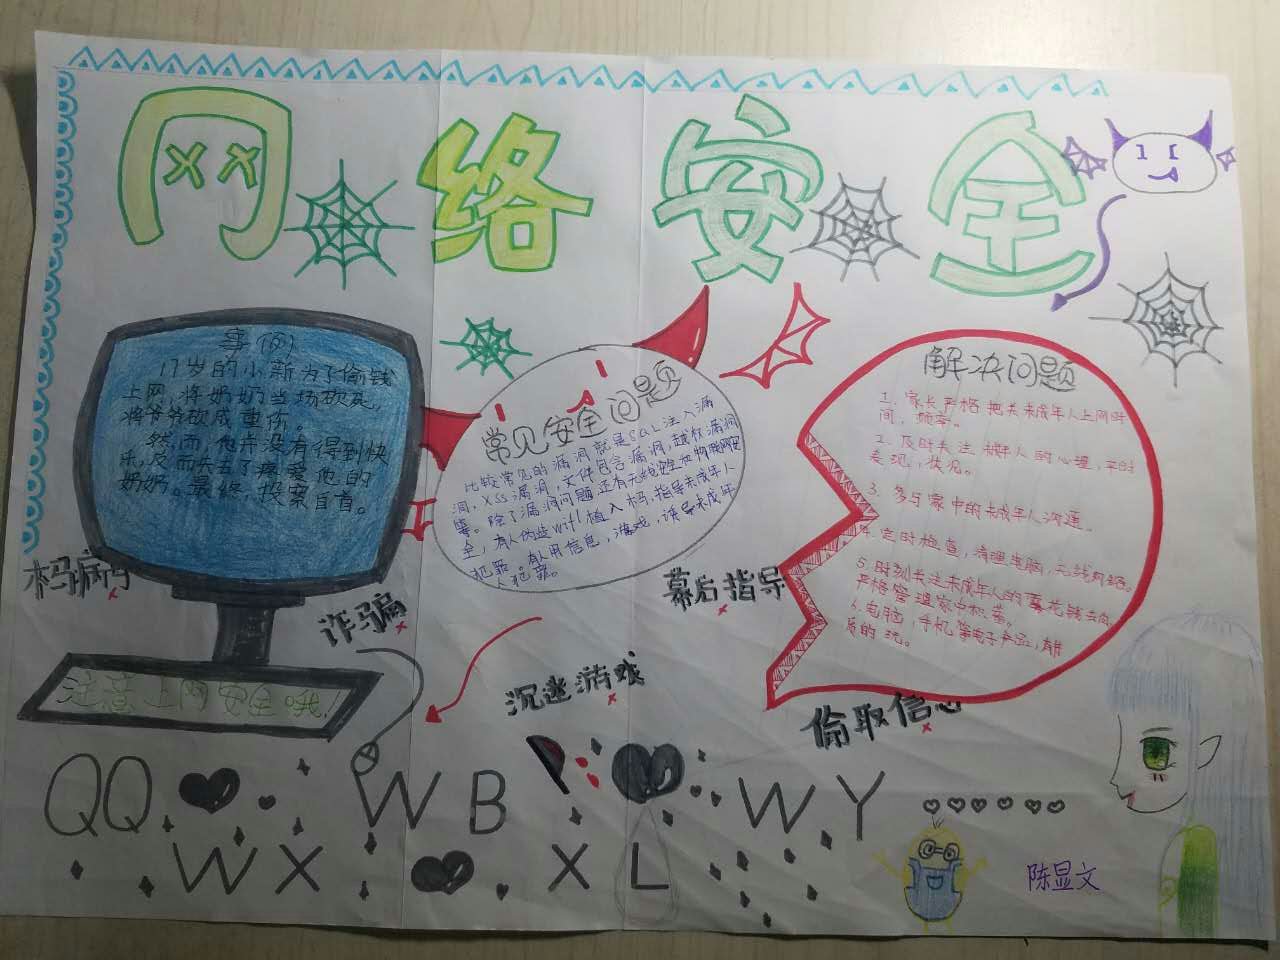 网络安全
事例
17岁的小新为了偷钱
上网，将奶奶当场砍死，
将爷爷砍成重伤。
然而，他并没有得到快
乐，反而失去了疼爱他的
奶奶。最终，投案自首。
注意上网安全哦！
常见安全问题
比较常见的漏洞就是SQL注入漏
洞，XSS漏洞，文件包含漏洞，越权漏洞
等。除了漏洞问题还有无线安全和物联网安
全，有人伪造wifi植入木马，指导未成年人
犯罪。有人用信息，游戏，误导未成年
人犯罪。
解决问题
1、家长严格把关未成年人上网时
间，频率。
2、及时关注 人的心理，平时
表现，状况。
3、多与家中的未成年人沟通。
4、定时检查，清理电脑，无线网络。
5、时刻关注未成年人的零花钱去向，
严格管理家中积蓄。
6、电脑，手机等电子产品，有
质的玩。
木马病
诈骗
幕后指导
沉迷游戏
偷取信息
QQ WB WY
WX XL
陈显文